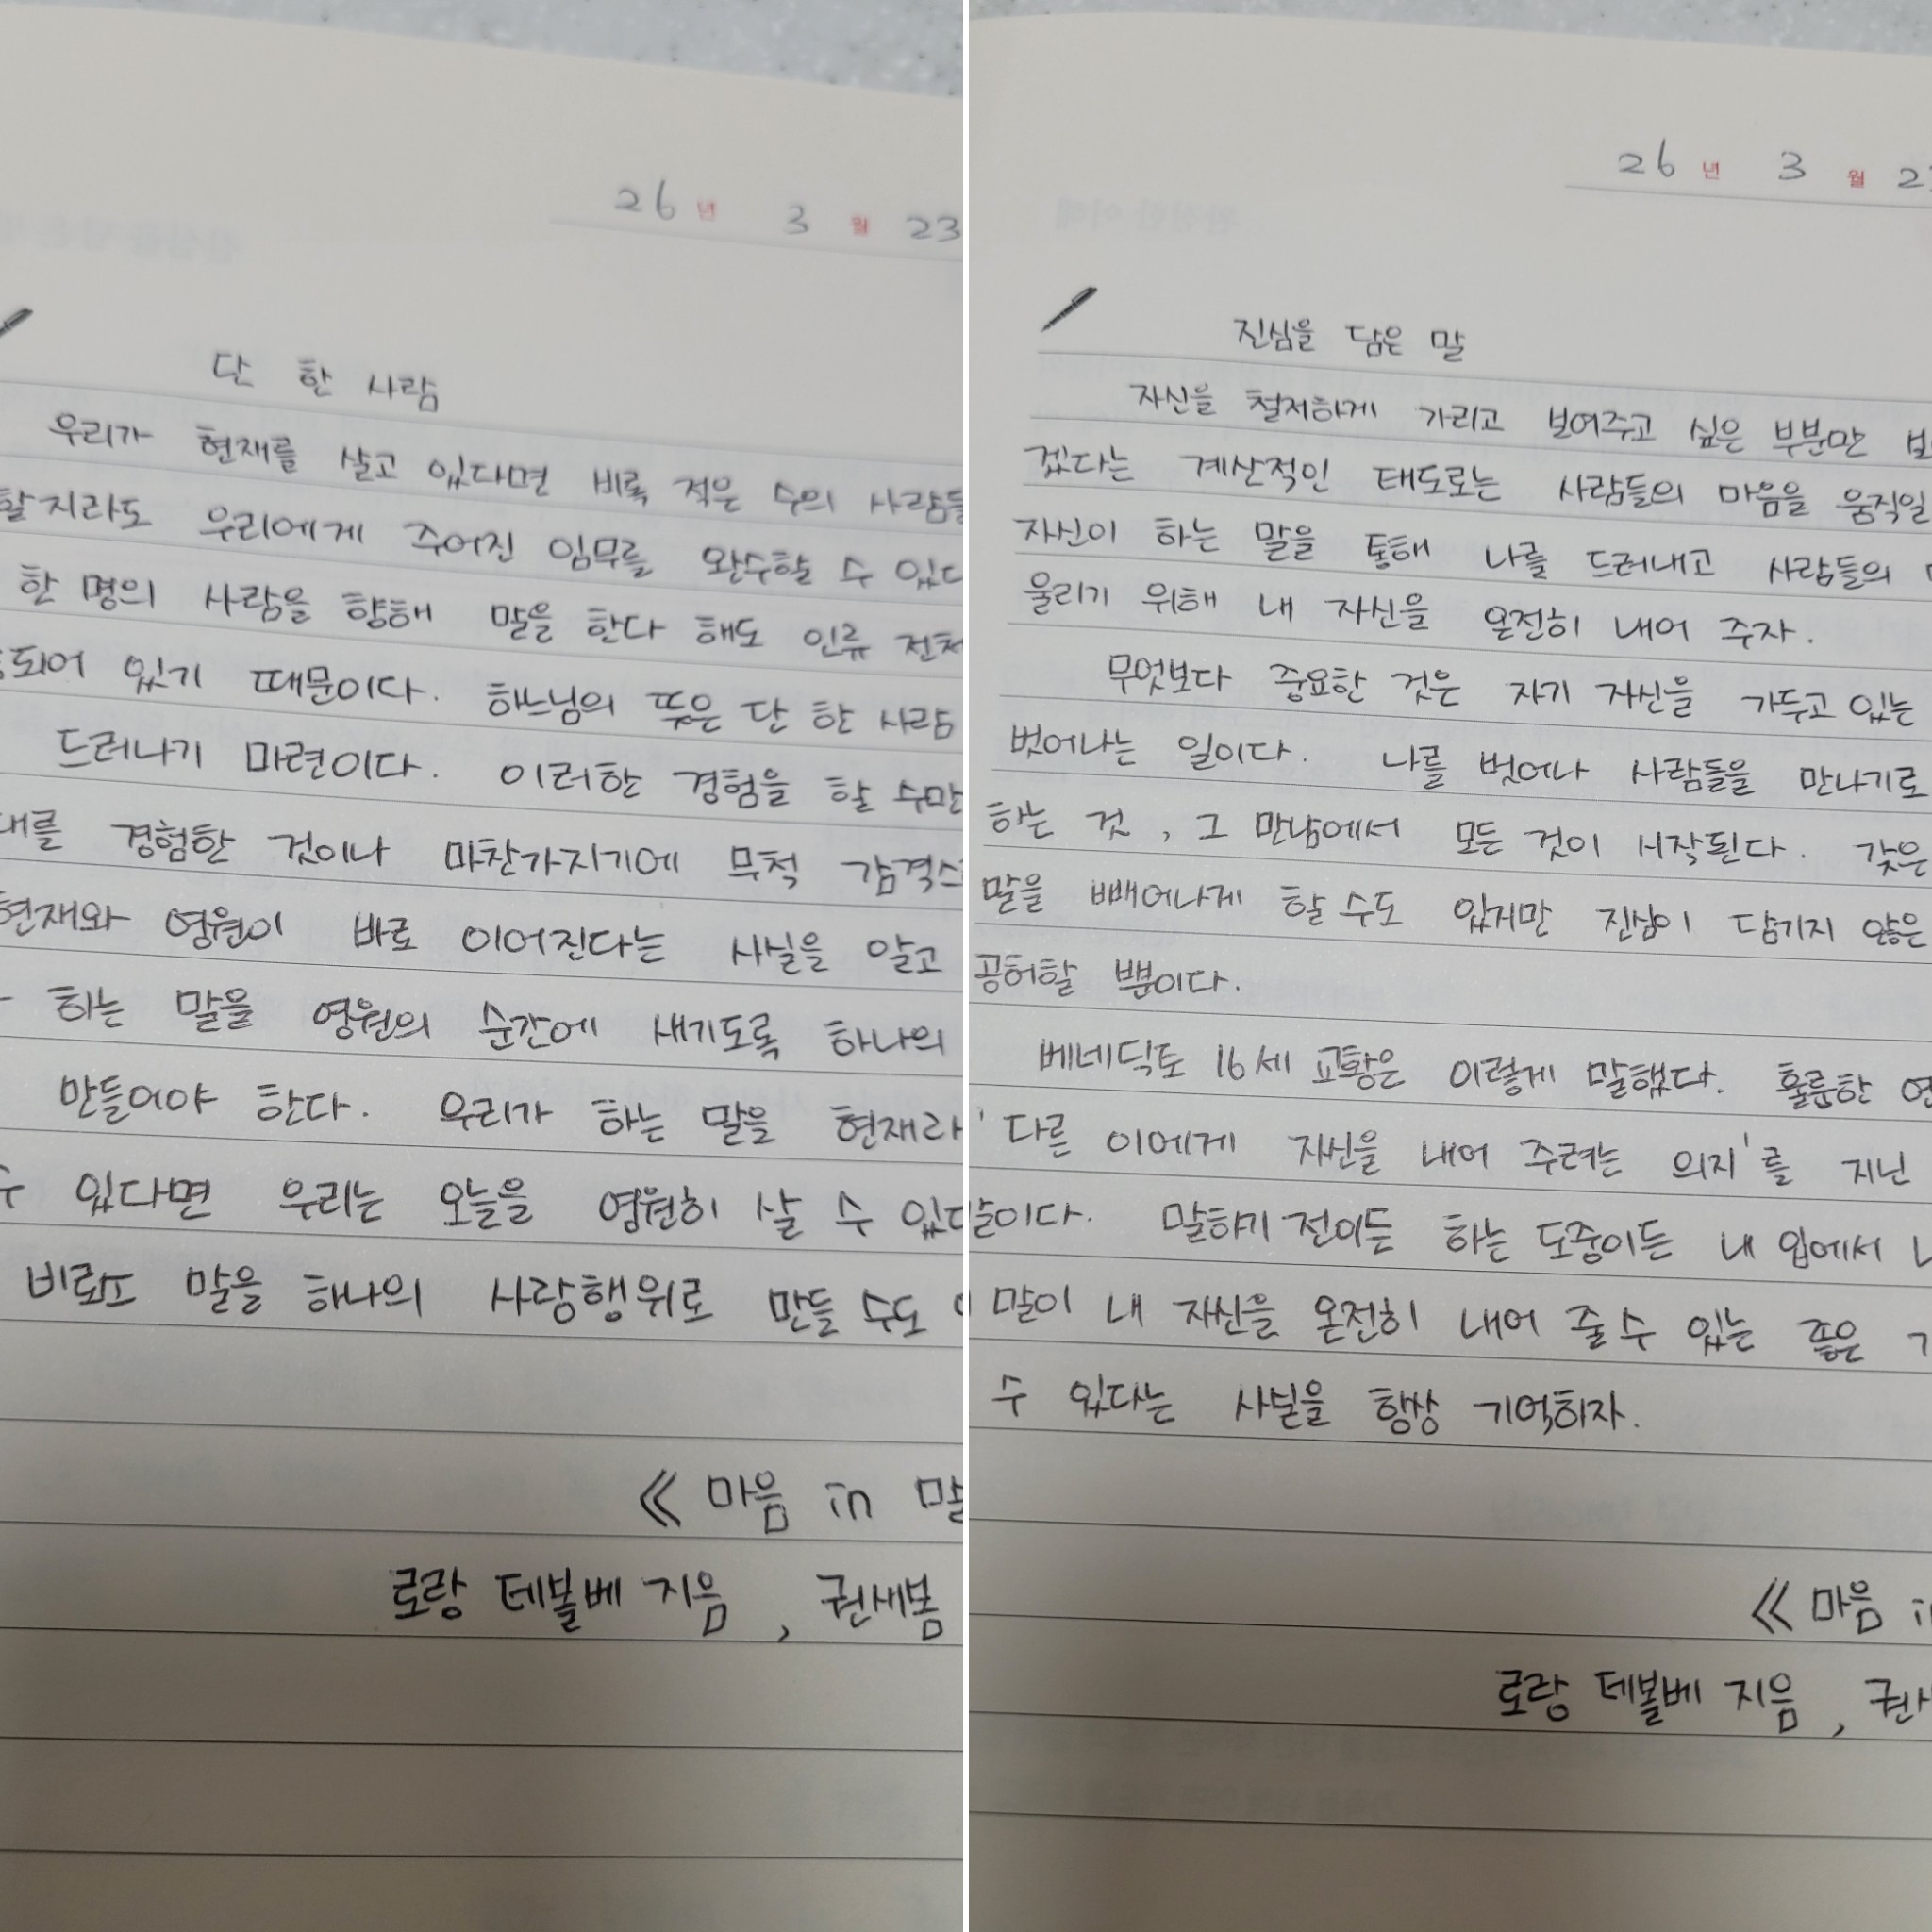 26 년 3 월 23
단 한 사람
우리가 현재를 살고 있다면 비록 적은 수의 사람들
할지라도 우리에게 주어진 임무를 완수할 수 있다
한 명의 사람을 향해 말을 한다 해도 인류 전체
되어 있기 때문이다. 하느님의 뜻은 단 한 사람
드러나기 마련이다. 이러한 경험을 할 수만
대를 경험한 것이나 마찬가지기에 무척 감격스
현재와 영원이 바로 이어진다는 사실을 알고
하는 말을 영원의 순간에 새기도록 하나의
만들어야 한다. 우리가 하는 말을 현재라
수 있다면 우리는 오늘을 영원히 살 수 있다
비로소 말을 하나의 사랑행위로 만들 수도
《 마음 in 말
로랑 테볼베 지음, 권세봄
26 년 3 월 2
진심을 담은 말
자신을 철저하게 가리고 보여주고 싶은 부분만 보
겠다는 계산적인 태도로는 사람들의 마음을 움직일
자신이 하는 말을 통해 나를 드러내고 사람들의
울리기 위해 내 자신을 온전히 내어 주자.
무엇보다 중요한 것은 자기 자신을 가두고 있는
벗어나는 일이다. 나를 벗어나 사람들을 만나기로
하는 것, 그 만남에서 모든 것이 시작된다. 갖은
말을 빼어나게 할 수도 있지만 진심이 담기지 않은
공허할 뿐이다.
베네딕토 16세 교황은 이렇게 말했다. 훌륭한 연
'다른 이에게 자신을 내어 주려는 의지'를 지닌
말이다. 말하기 전이든 하는 도중이든 내 입에서
말이 내 자신을 온전히 내어 줄 수 있는 좋은
수 있다는 사실을 항상 기억하자.
《 마음 in
로랑 테볼베 지음, 권세